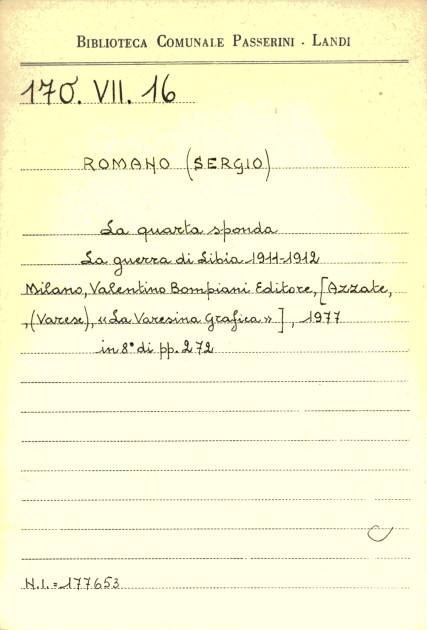 BIBLIOTECA COMUNALE PASSERINI - LANDI
170. VII. 16
ROMANO (SERGIO)
La quarta sponda
La guerra di Libia 1911-1912
Milano, Valentino Bompiani Editore, [Azzate,
,(Varese), «La Varesina Grafica» ], 1977
in 8° di pp. 272
N.I. = 177653